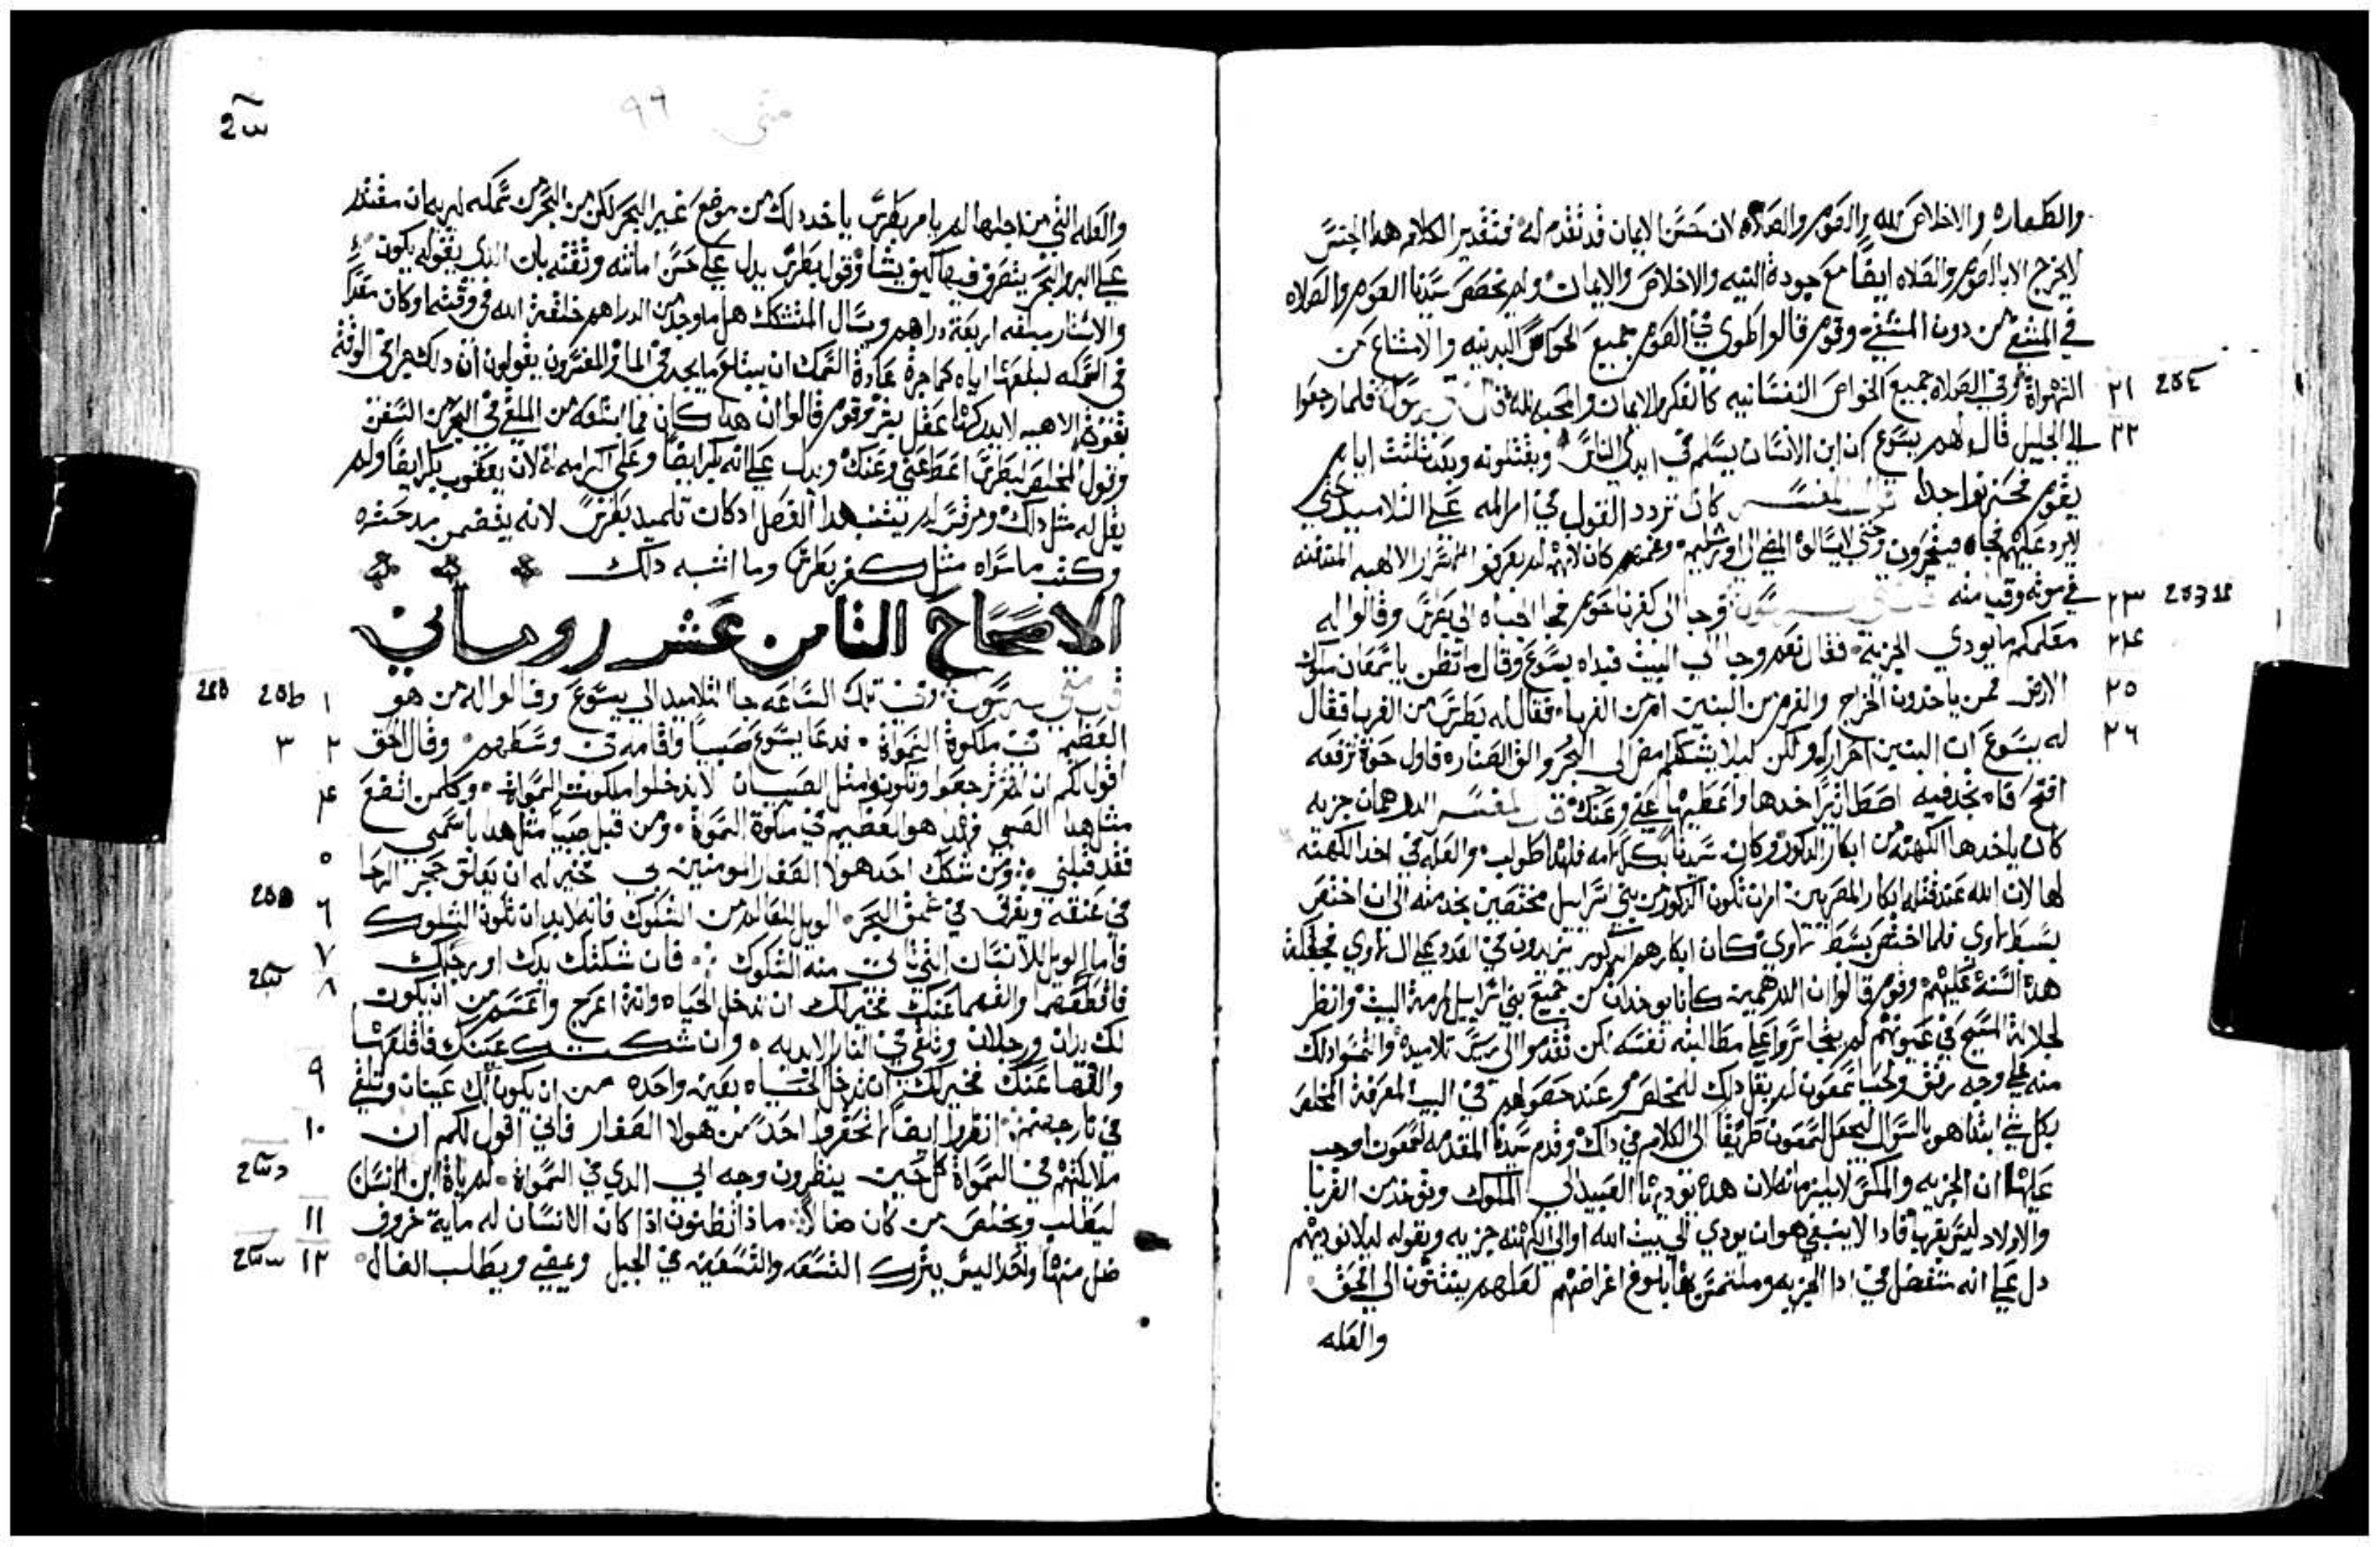 والطهاره والاخلاص لله والصوم والصلاه لان حسن الايمان قد تقدم له فتقدير الكلام هدا الجنس
لا يخرج الا بالصوم والصلاه ايضًا مع جودة النيه والاخلاص والايمان ولم يخصص سيدنا الصوم والصلاه
في المشفي من دون المشفي وقوم قالوا طوي في الصوم جميع الحواس البدنيه والامتناع من
٢١ الشهواة وفي الصلاة جميع الحواس النفسانيه كالفكر والايمان والمحبه لله فلما رجعوا
٢٢ الي الجليل قال لهم يسوع ان ابن الانسان يسلم في ايدي الناس ويقتلونه وبعد ثلثت ايام
يقوم فحزنوا جدا قال المفسر كان تردد القول في امر المه علي التلاميد حتي
لا يرد عليهم فجاه فيضجرون وحتي لا يسالوه المضي الي اورشليم وغمهم كان لانهم لم يعرفوا السر الالهيه
في موته وقيامته وجا الي كفرناحوم فجا الجباه الي بطرس وقالوا له ٢٣
٢٤ معلمكم ما يودي الجزيه فقال نعم وجا الي البيت فبداه يسوع وقال ما تظن يا سمعان ملوك
٢٥ الارض ممن ياخدون الخراج والغرم من البنين ام من الغربا فقال له بطرس من الغربا فقال
٢٦ له يسوع ان البنين احرار ولكن ليلا يشكهم امض الي البحر والق الصناره فاول حوة ترفعه
افتح فاه تجد فيه اصطاتيرًا خدها واعطيها عني وعنك قال المفسر الدرهمان جزيه
كان ياخدها الكهنه من ابكار الدكور وكان سيدنا بكر لامه فلهدا طولب والعله في اخد الكهنه
لها لان الله عند قتله ابكار المصريين امر ان تكون الدكور من بني اسراييل مختصين بخدمته الي ان اختص
بسبط لاوي فلما اختص بسبط لاوي كان ابكارهم يزيدون في العدد علي ال لاوي فجعلت
هده السنه عليهم وقوم قالوا ان الدرهمين كانا يوخدان من جميع بني اسراييل لمرمة البيت وانظر
لجلالة المسيح في عيونهم لم يتجاسروا علي مطالبته نفسه لكن تقدموا الي رييس تلاميده والتمسوا دلك
منه علي وجه رفق ولحيا سمعون لم يقل دلك للمخلص عند حضولهم في البيت لمعرفة المخلص
بكل شي ابتدا هو بالسوال ليجعل لسمعون طريقًا الي الكلام في داك وقدم سيدنا المقدمه لسمعون اوجب
عليها ان الجزيه والمكس لا يلزمانه لان هده تودونها العبيد الي الملوك وتوخد من الغربا
والاولاد ليس بغربا فادا لا ينبغي هو ان يودي الي بيت الله او الي الكهنه جزيه وبقوله ليلا نوديهم
دل علي انه متفضل في ادا الجزيه وملتمس بها بلوغ اغراضهم لعلهم ينثنون الي الحق
والعله
متى ٩٩
والعله التي من اجلها لم يامر بطرس ياخد دلك من موضع غير البحر لكن من البحر من سمكه ليريه ان مقتدر
علي البر والبحر يتصرف فيها كيف يشا وقول بطرس يدل علي حسن امانته وثقته بان الدي يقوله يكون
والاستار مبلغه اربعة دراهم ويسال المتشكك هل ما وجد من الدراهم خلقه الله في وقته او كان معدًا
في السمكه لبلعها اياه كما جرة عادة السمك ان يبتلع ما يجد في الما والمفسرون يقولون ان دلك في الوقت
بقوة الاهيه لا يدركها عقل بشر وقوم قالوا ان هدا كان مما ابتلعه من الملقي في البحر من السفن
وقول المخلص لبطرس اعط عني وعنك ويدل علي انه بكر ايضًا وعلي اكرامه له لان يعقوب بكر ايضًا ولم
يقل له مثل دلك ومرقس لم يثبت هدا الفصل ادكان تلميد بطرس لانه يتضمن مدحته
وكتب ما سواه مثل كفر بطرس وما اشبه دلك
الاصحاح الثامن عشر روماني
١ وفي تلك الساعه جا التلاميد الي يسوع وقالوا له من هو
٢ ٣ العظيم في ملكوة السمواة فدعا يسوع صبيًا واقامه في وسطهم وقال الحق
٤ اقول لكم ان لم ترجعوا وتكونوا مثل الصبيان لا تدخلوا ملكوت السمواة وكلمن اتضع
مثل هدا الصبي فهدا هو العضيم في ملكوة السمواة ومن قبل صبيًا مثل هدا باسمي
٥ فقد قبلني ومن شكك احد هولا الصغار المومنين بي خير له ان يعلق حجر الرحا
٦ في عنقه ويغرق في عمق البحر الويل للعالم من الشكوك فانه لابد ان تكون الشكوك
٧ فاما الويل للانسان الدي تاتي منه الشكوك فان شكتك يدك او رجلك
٨ فاقطعها والقها عنك فخير لك ان تدخل الحياه وانت اعرج واعسم من ان يكون
لك يدان ورجلان وتلقي في النار الابديه وان شككتك عينك فاقلعها
٩ والقها عنك فخير لك ان تدخل الحياه بعين واحده من ان يكون لك عينان وتلقي
١٠ في نار جهنم انظروا ايضًا لا تحقروا احدًا من هولا الصغار فاني اقول لكم ان
ملايكتهم في السمواة كل حين ينظرون وجه ابي الدي في السمواة لم ياة ابن الانسان
١١ ليطلب ويخلص من كان ضالًا مادا تظنون اذا كان الانسان له ماية خروف
١٢ ضل منها واحد اليس يترك التسعه والتسعين في الجبل ويمضي ويطلب الضال